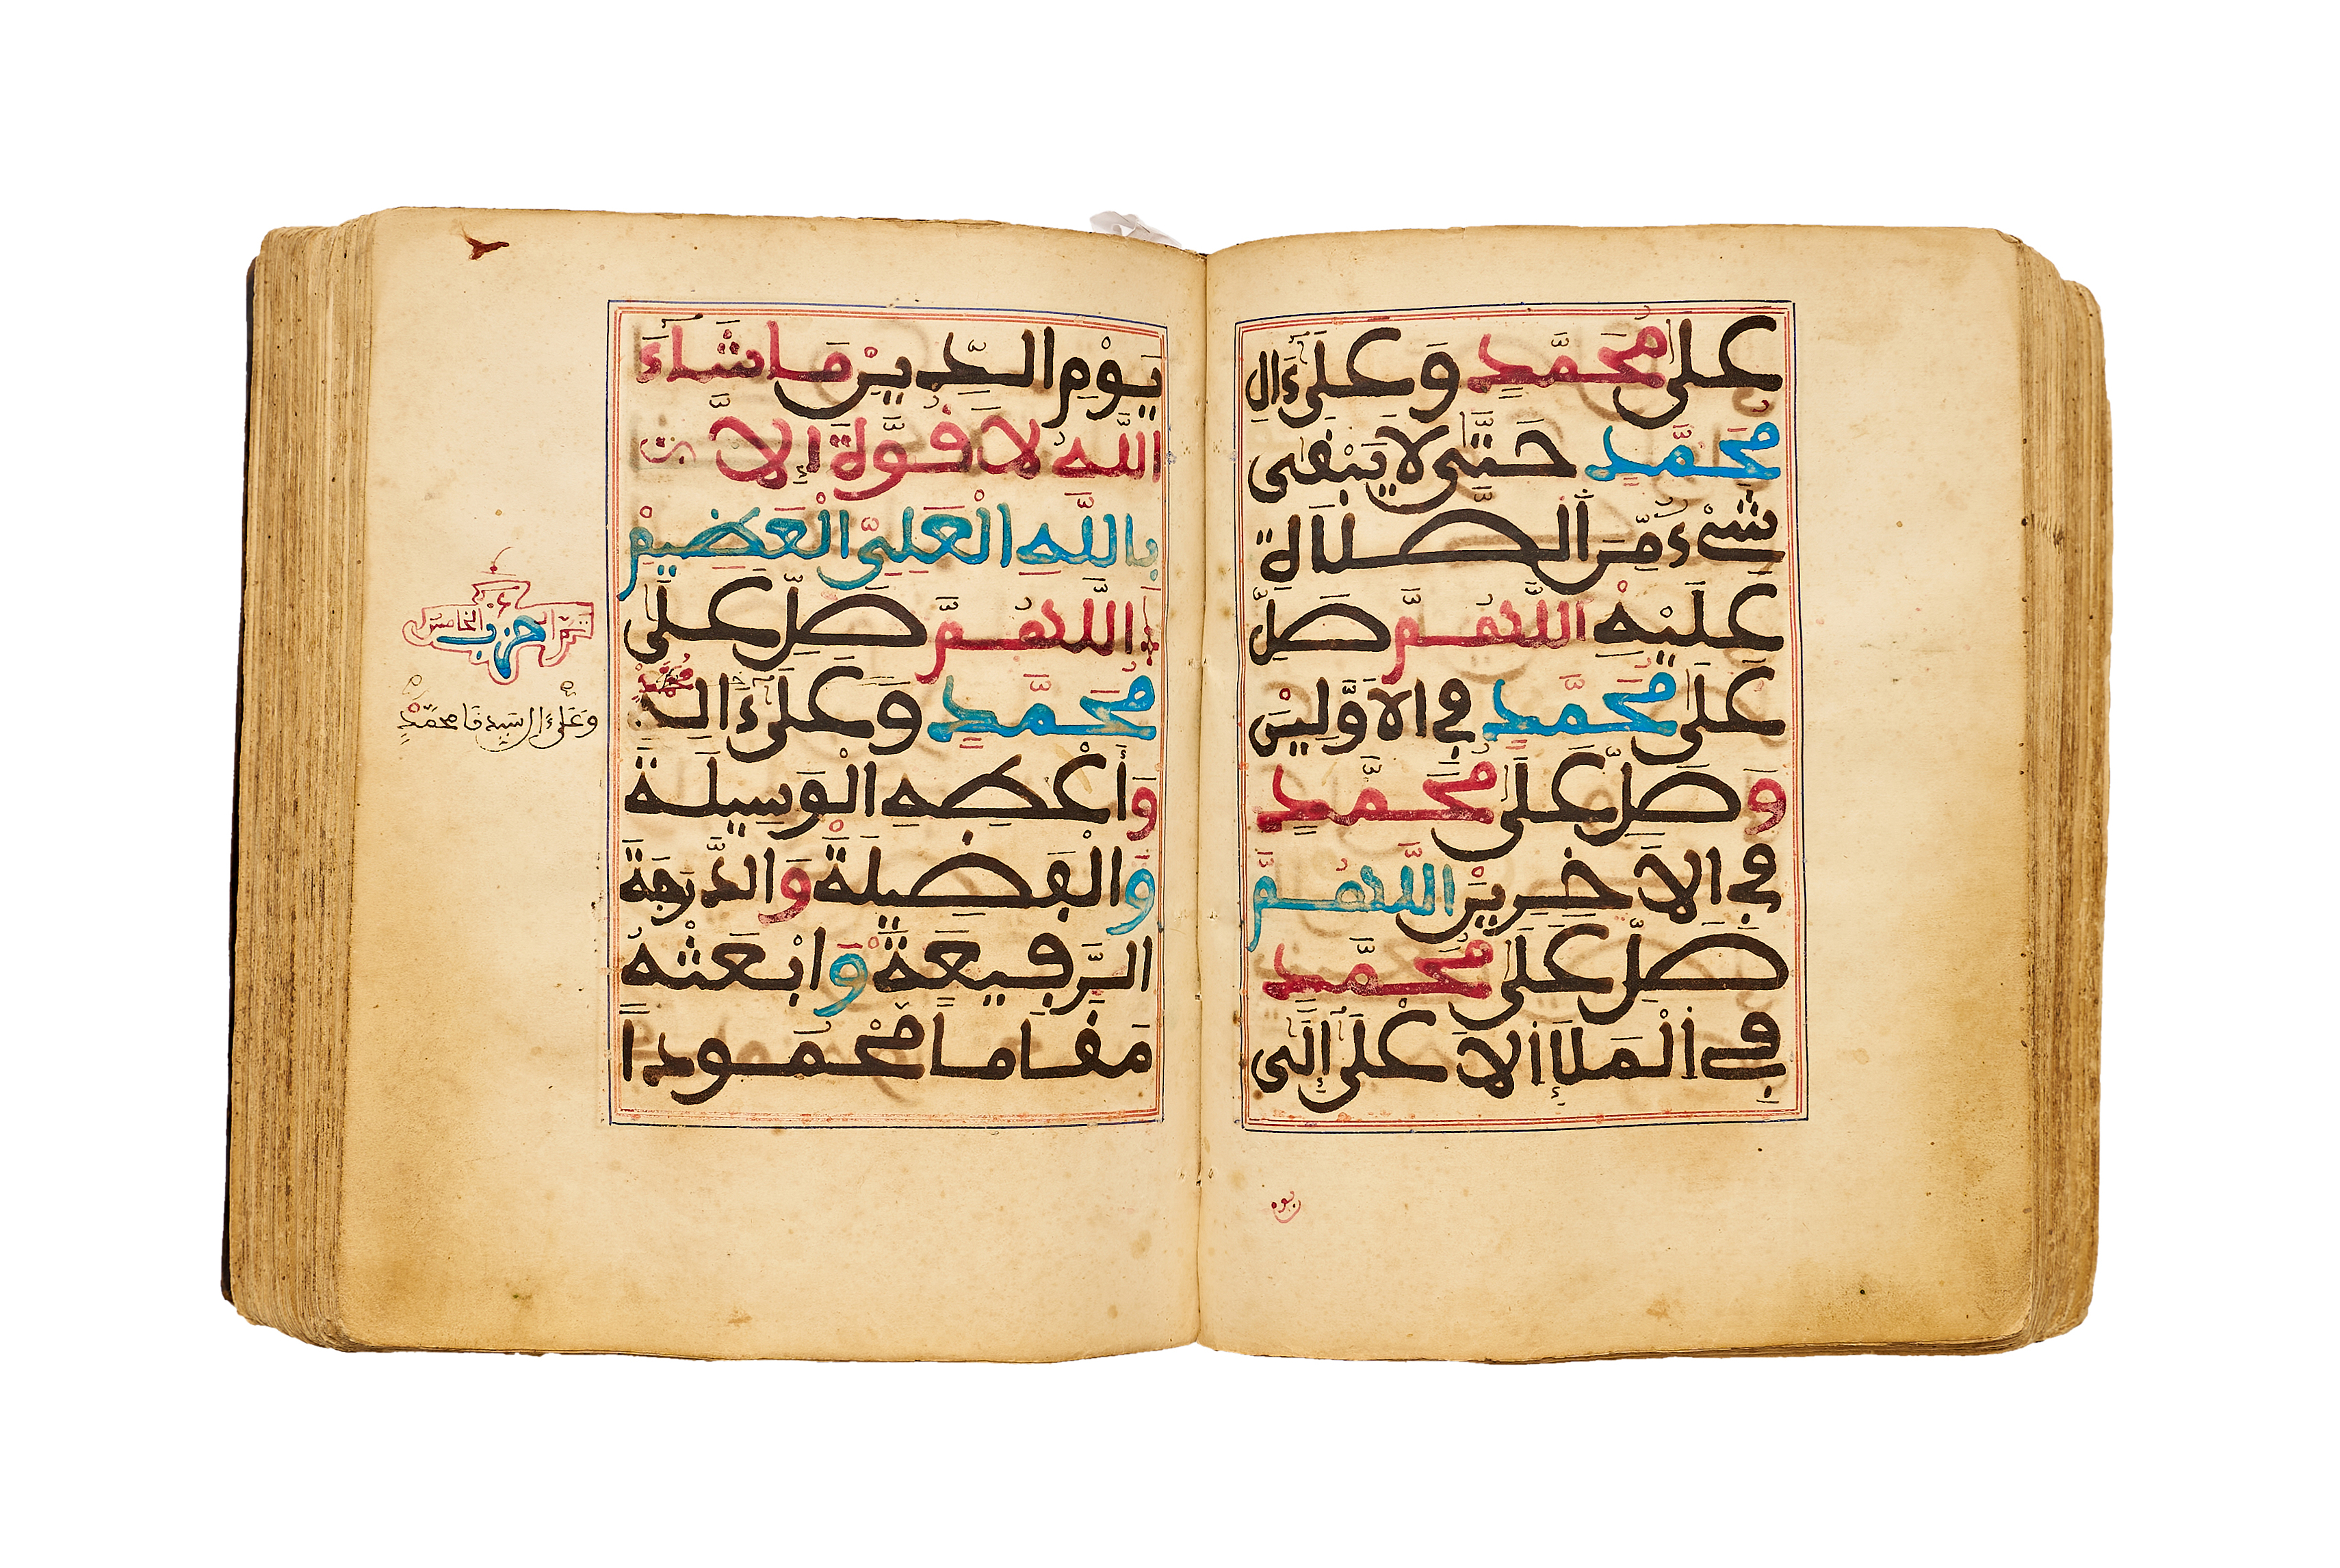 عَلَى مُحَمَّدٍ وَعَلَىٰ ءَالِ
مُحَمَّدٍ حَتَّىٰ لَا يَبْقَى
شَيْءٌ مِّنَ الصَّلَاةِ
عَلَيْهِ اللَّهُمَّ صَلِّ
عَلَى مُحَمَّدٍ فِي الاَوَّلِينَ
وَصَلِّ عَلَى مُحَمَّدٍ
فِي الاَخِرِينَ اللَّهُمَّ
صَلِّ عَلَى مُحَمَّدٍ
فِي الْمَلَإِ الاَعْلَىٰ إِلَىٰ
يَوْمِ الدِّينِ مَا شَاءَ
اللَّهُ لَا قُوَّةَ إِلَّا
بِاللَّهِ الْعَلِيِّ الْعَضِيمِ
اللَّهُمَّ صَلِّ عَلَى
مُحَمَّدٍ وَعَلَىٰ ءَالِ مُحَمَّدٍ
وَأَعْطِهِ الْوَسِيلَةَ
وَالْفَضِيلَةَ وَالدَّرَجَةَ
الرَّفِيعَةَ وَابْعَثْهُ
مَقَاماً مَحْمُوداً
الحزب الخامس
وَعَلَىٰ ءَالِ سَيِّدِنَا مُحَمَّدٍ